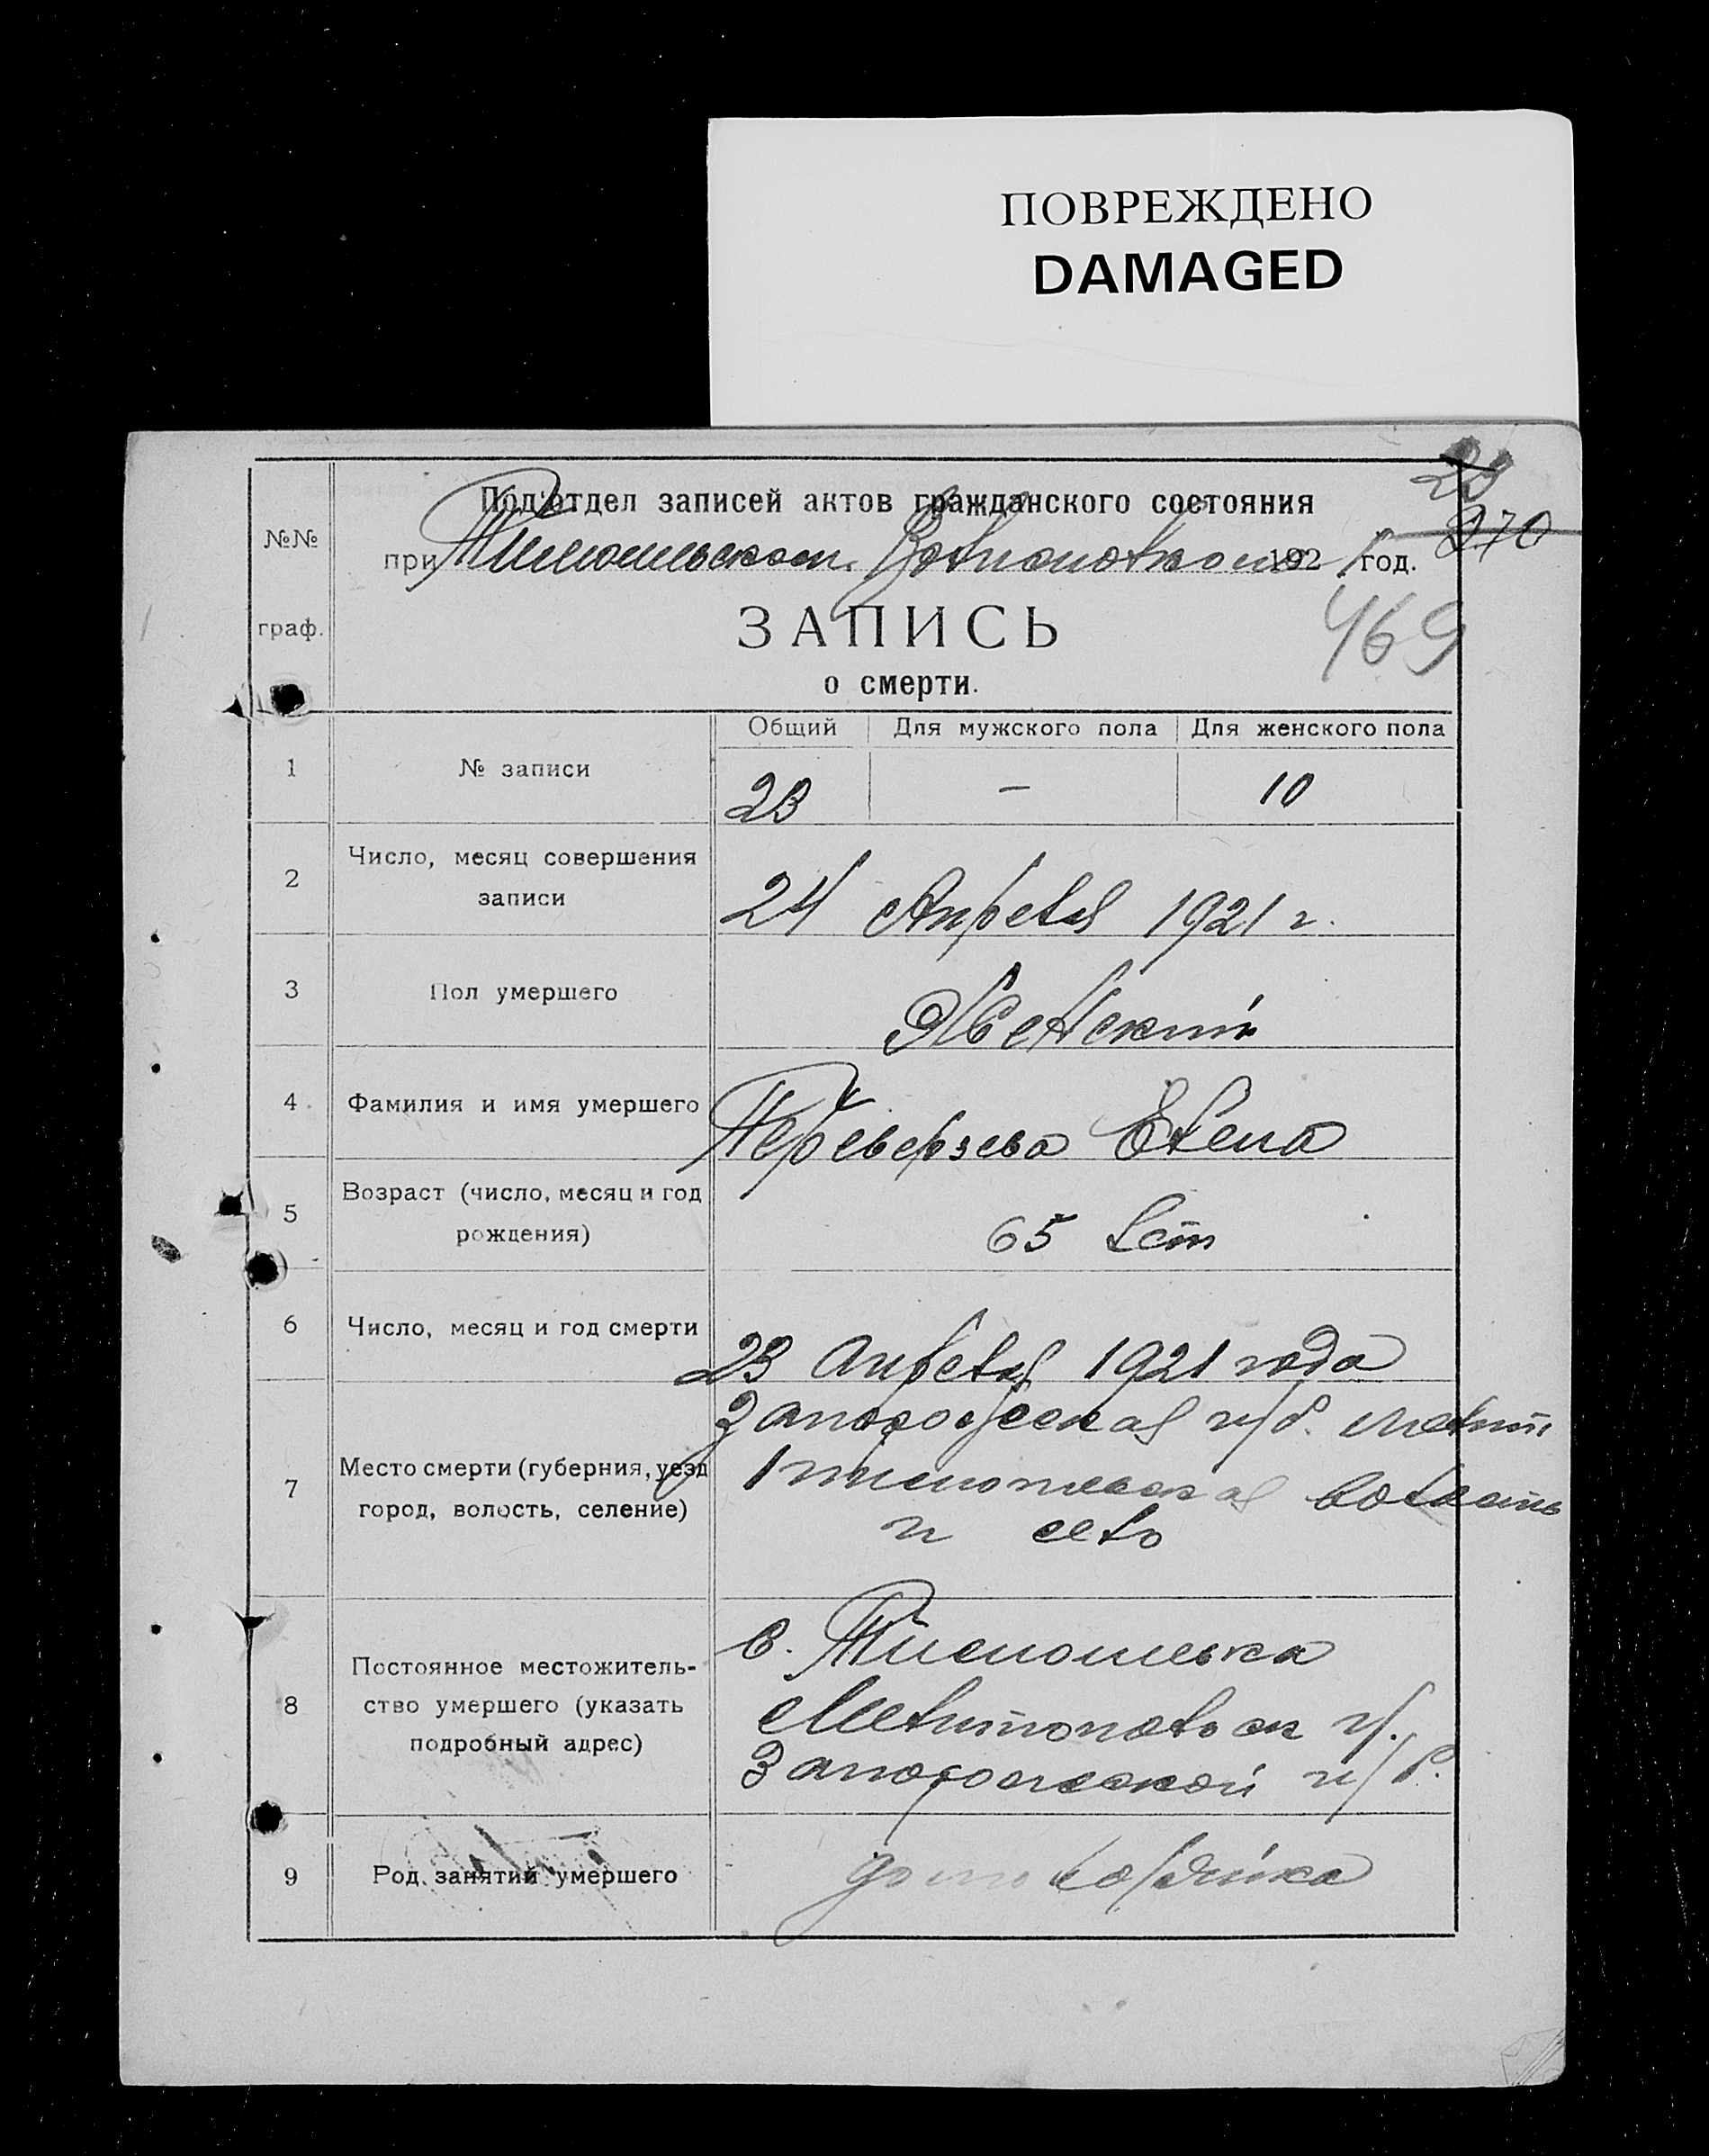 ПОВРЕЖДЕНО
DAMAGED
23
270
Под'отдел записей актов гражданского состояния
№№
при Тимошевском Волисполкоме 1921 год.
граф.
469
ЗАПИСЬ
о смерти.
Общий Для мужского пола Для женского пола
1 № записи 23 — 10
2 Число, месяц совершения
записи
24 Апреля 1921 г.
3 Пол умершего Женский
4 Фамилия и имя умершего Переверзева Елена
5 Возраст (число, месяц и год
рождения)
65 лет
6 Число, месяц и год смерти 23 апреля 1921 года
7 Место смерти (губерния, уезд
город, волость, селение)
Запорожская г/б. Мелит.
Тимошевская волость
и село
8 Постоянное местожитель-
ство умершего (указать
подробный адрес)
с. Тимошевка
Мелитопольск у.
Запорожской г/б.
9 Род занятий умершего домохозяйка